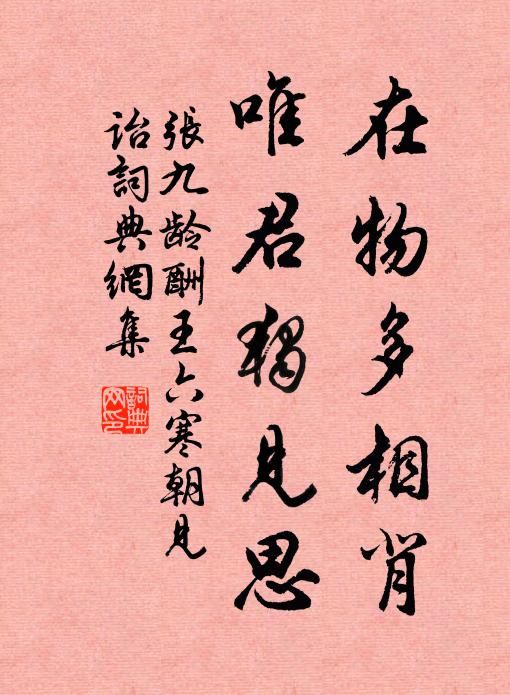 在物多相肖
唯君獨見思
張九齡酬王六寒朝見
詒詞典網集
詞典
网印